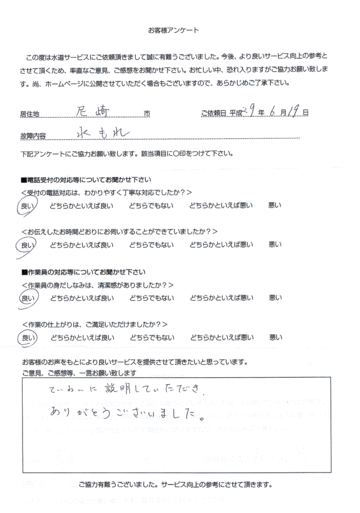 お客様アンケート
この度は水道サービスにご依頼頂きまして誠に有難うございました。今後、より良いサービス向上の参考と
させて頂くため、率直なご意見、ご感想をお聞かせ下さい。お忙しい中、恐れ入りますがご協力お願い致しま
す。尚、ホームページに公開させていただく場合もございますので、あらかじめご了承下さい。
居住地 尼崎 市 ご依頼日 平成29年6月19日
故障内容 水もれ
下記アンケートにご協力お願い致します。該当項目に〇印をつけて下さい。
■電話受付の対応等についてお聞かせ下さい
<受付の電話対応は、わかりやすく丁寧な対応でしたか？>
良い どちらかといえば良い どちらでもない どちらかといえば悪い 悪い
<お伝えしたお時間どおりにお伺いすることができていましたか？>
良い どちらかといえば良い どちらでもない どちらかといえば悪い 悪い
■作業員の対応等についてお聞かせ下さい
<作業員の身だしなみは、清潔感がありましたか？>
良い どちらかといえば良い どちらでもない どちらかといえば悪い 悪い
<作業の仕上がりは、ご満足いただけましたか？>
良い どちらかといえば良い どちらでもない どちらかといえば悪い 悪い
お客様のお声をもとにより良いサービスを提供させて頂きたいと思っています。
ご意見、ご感想等、一言お願い致します
ていねいに説明していただき、
ありがとうございました。
ご協力有難うございました。サービス向上の参考にさせて頂きます。